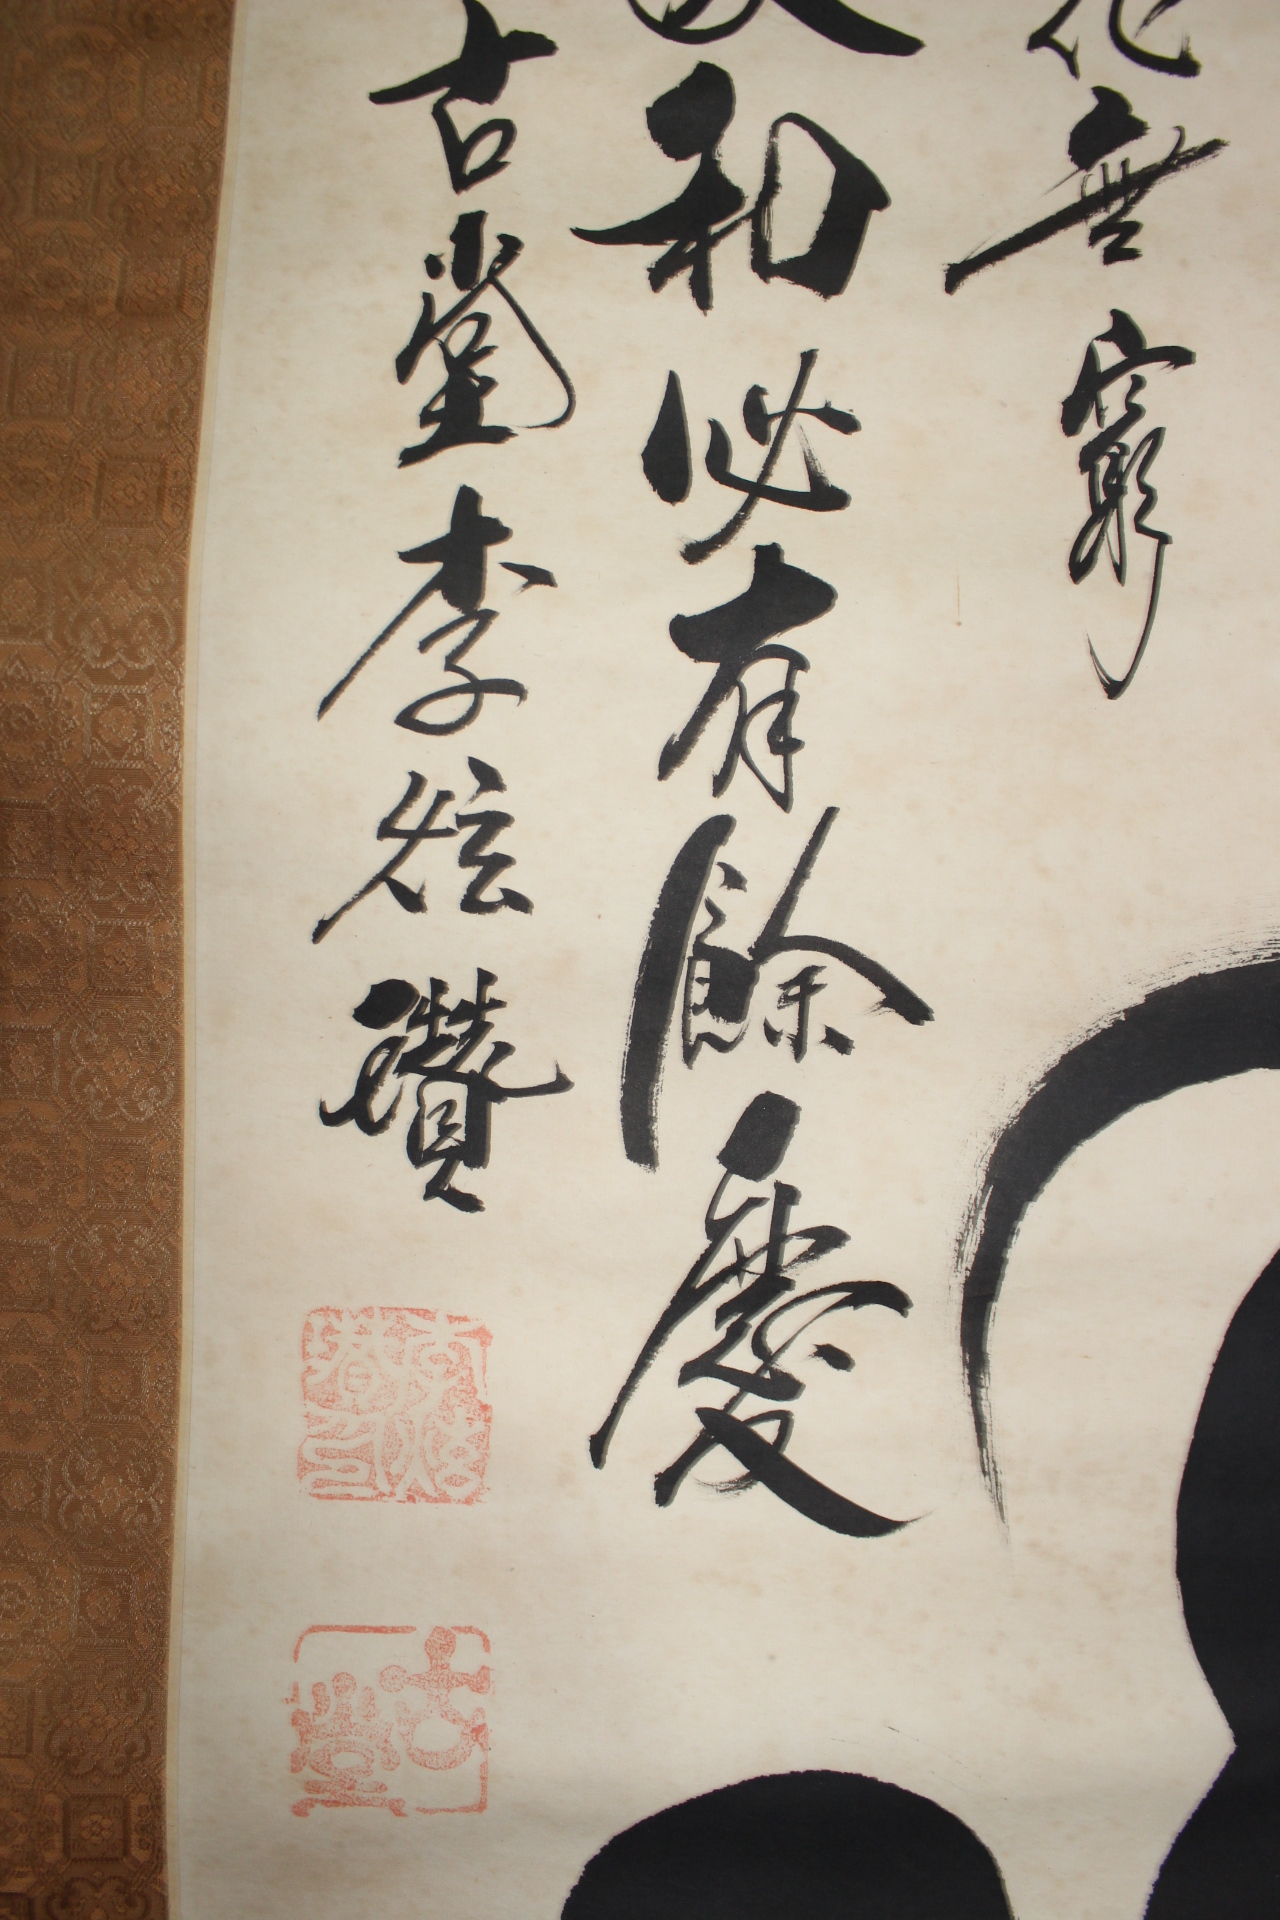 無窮
和必有餘慶
古堂李炫讚
古堂